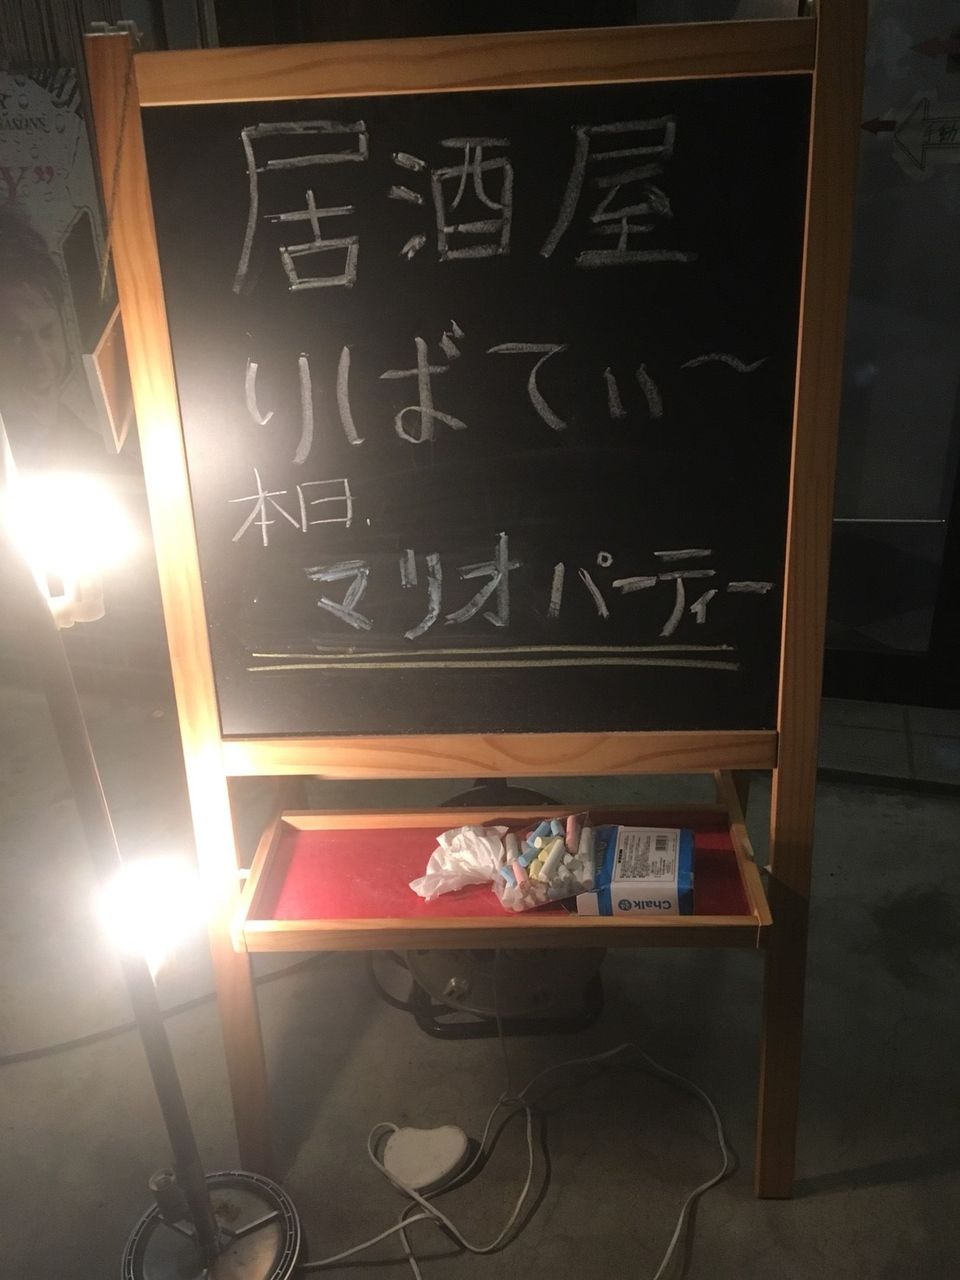 居酒屋
りばてぃ〜
本日.
マリオパーティー
Chalk